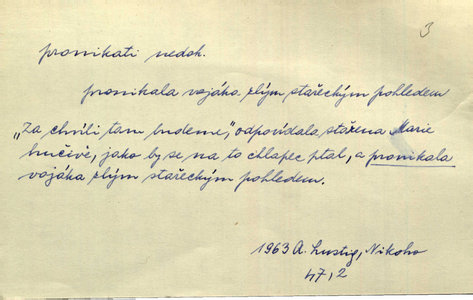 3
pronikati nedok.
pronikala vojáka zlým stařeckým pohledem
„Za chvíli tam budeme," odpovídala stařena Marie
hučivě, jako by se na to chlapec ptal, a pronikala
vojáka zlým stařeckým pohledem.
1963 A. Lustig, Nikoho
47, 2